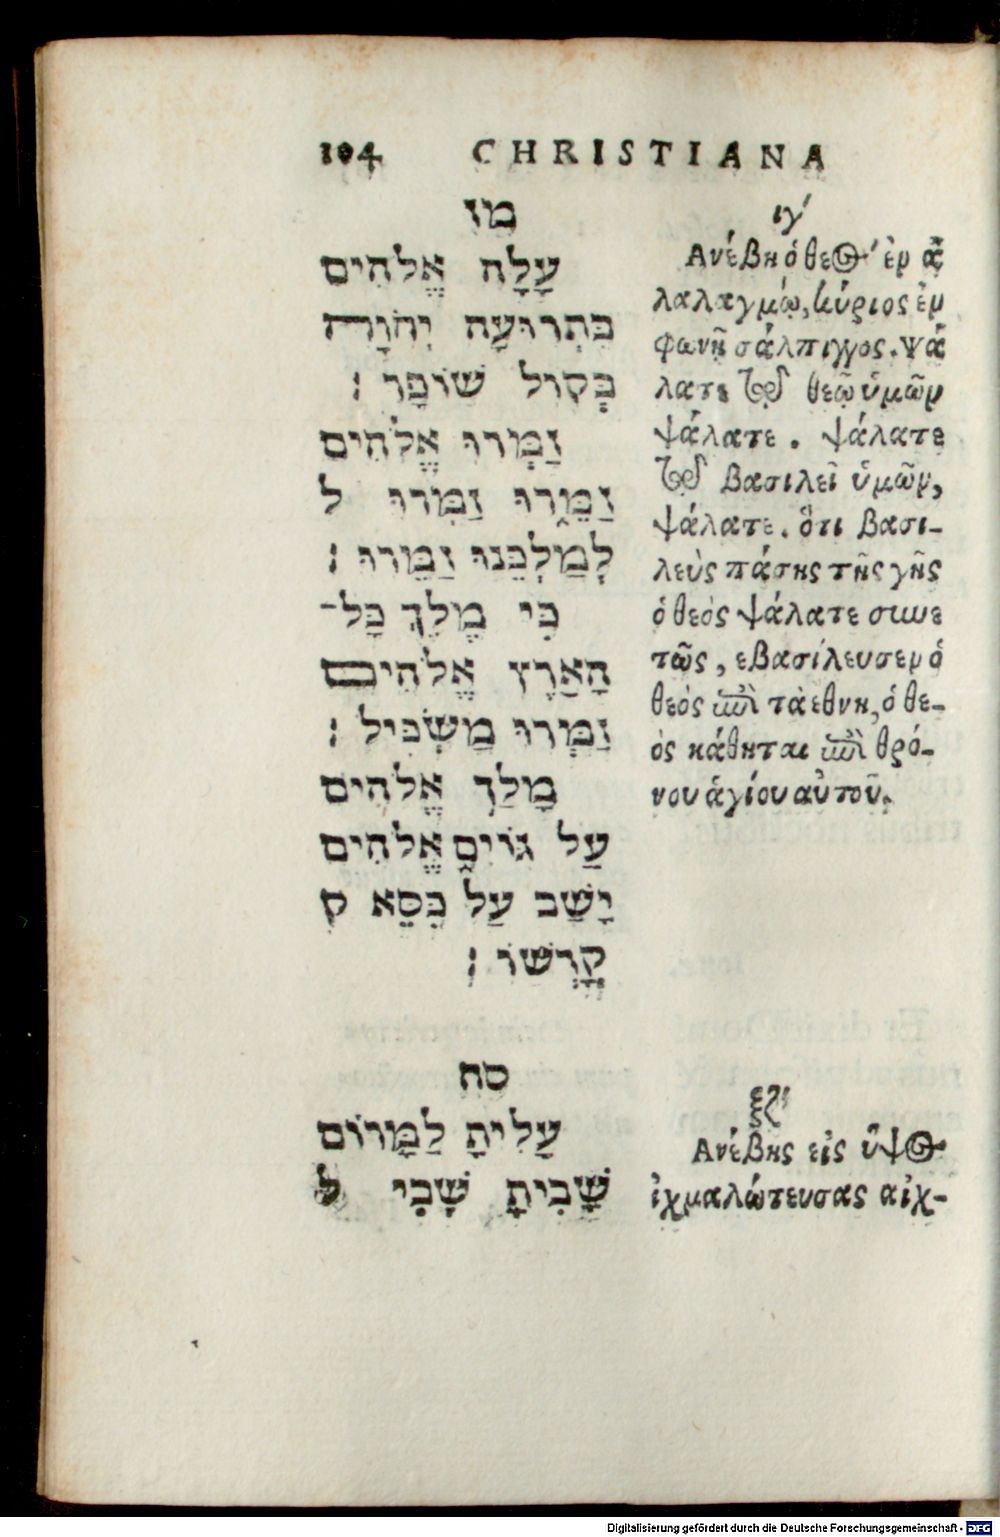 104 CHRISTIANA
מז
עָלָה אֱלֹהִים
בִּתְרוּעָה יְהֹוָה
בְּקוֹל שׁוֹפָר :
זַמְּרוּ אֱלֹהִים
זַמֵּרוּ זַמְּרוּ ל
לְמַלְכֵּנוּ זַמֵּרוּ :
כִּי מֶלֶךְ כָּל־
הָאַרֶץ אֱלֹהִים
זַמְּרוּ מַשְׂכִּיל :
מָלַךְ אֱלֹהִים
עַל גּוֹיִם אֱלֹהִים
יָשַׁב עַל כִּסֵּא ק
קָדְשׁוֹ :
סח
עָלִיתָ לַמָּרוֹם
שָׁבִיתָ שֶׁבִי ל
ιγ΄
Ανέβη ὁ θεὸς ἐν ἀ
λαλαγμῷ, κύριος ἐν
φωνῇ σάλπιγγος. Ψά
λατε τῷ θεῷ ὑμῶν
ψάλατε. ψάλατε
τῷ βασιλεῖ ὑμῶν,
ψάλατε. ὅτι βασι-
λεὺς πάσης τῆς γῆς
ὁ θεὸς ψάλατε συνε
τῶς, εβασίλευσεν ὁ
θεός ἐπὶ τὰ εθνη, ὁ θε-
ὸς κάθηται ἐπὶ θρό-
νου ἁγίου αὐτοῦ.
ξζ΄
Ανέβης εἰς ὕψος
ἰχμαλώτευσας αἰχ-
Digitalisierung gefördert durch die Deutsche Forschungsgemeinschaft - DFG